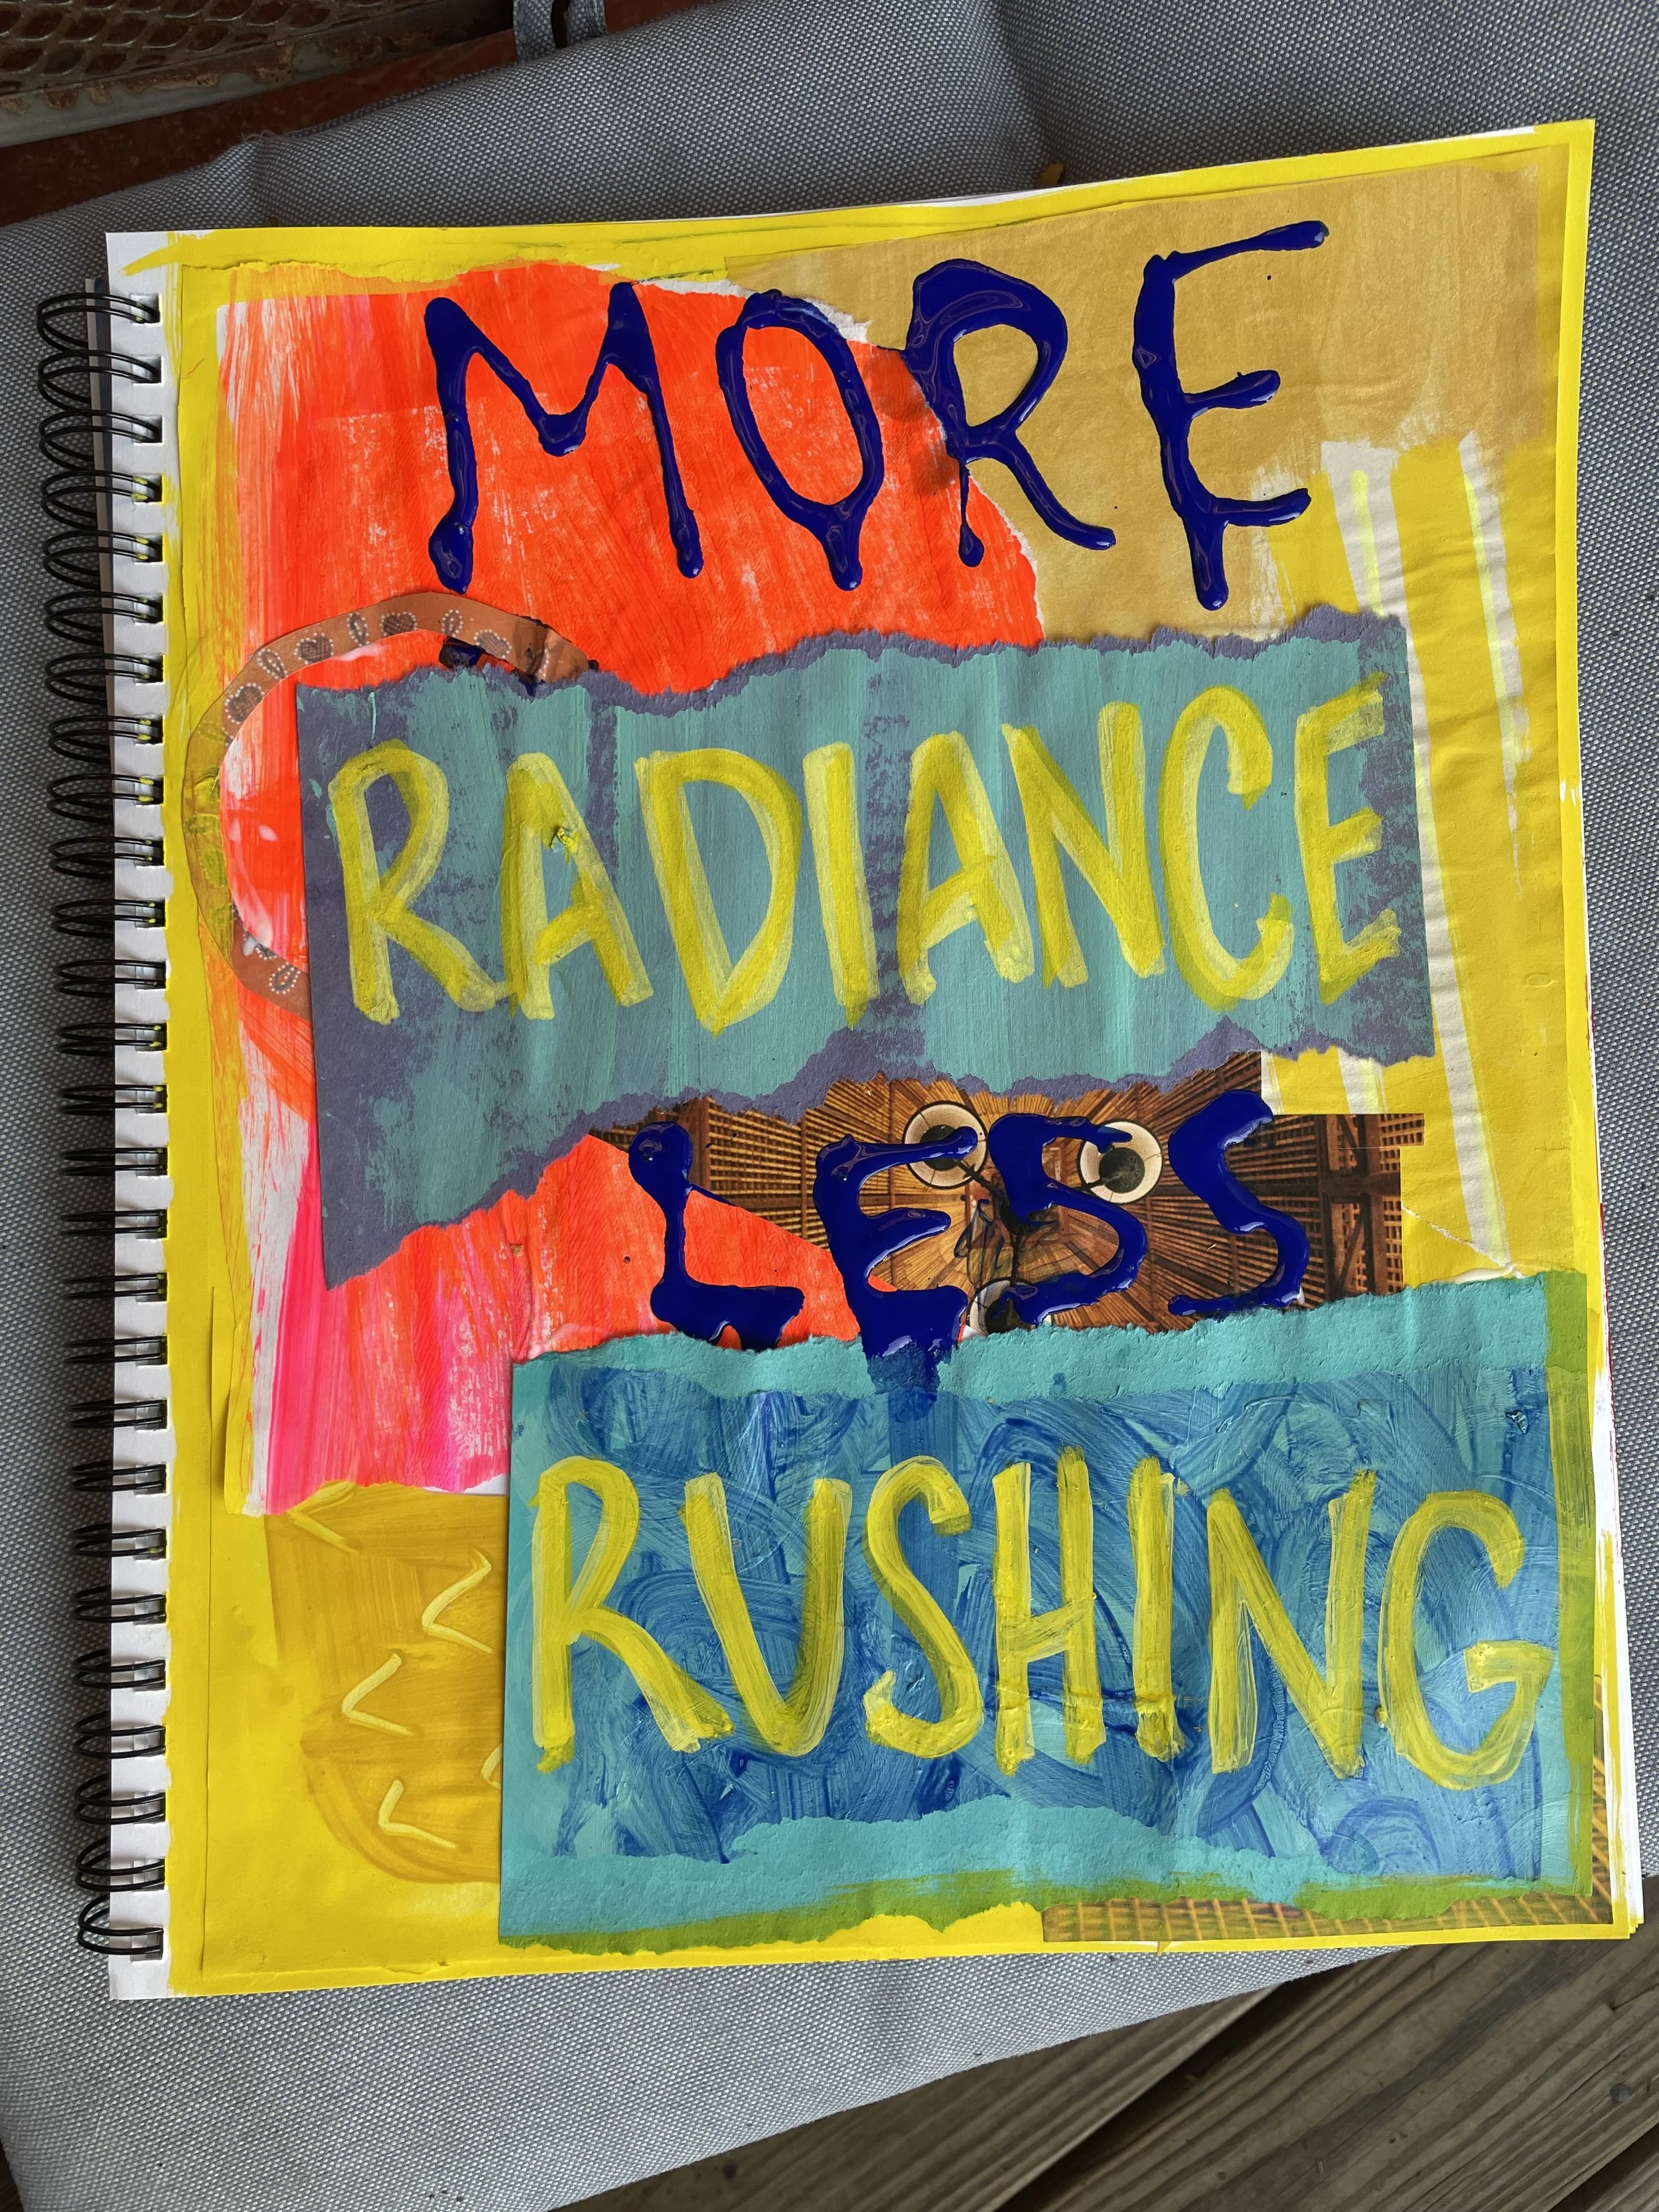 MORE
RADIANCE
LESS
RUSHING